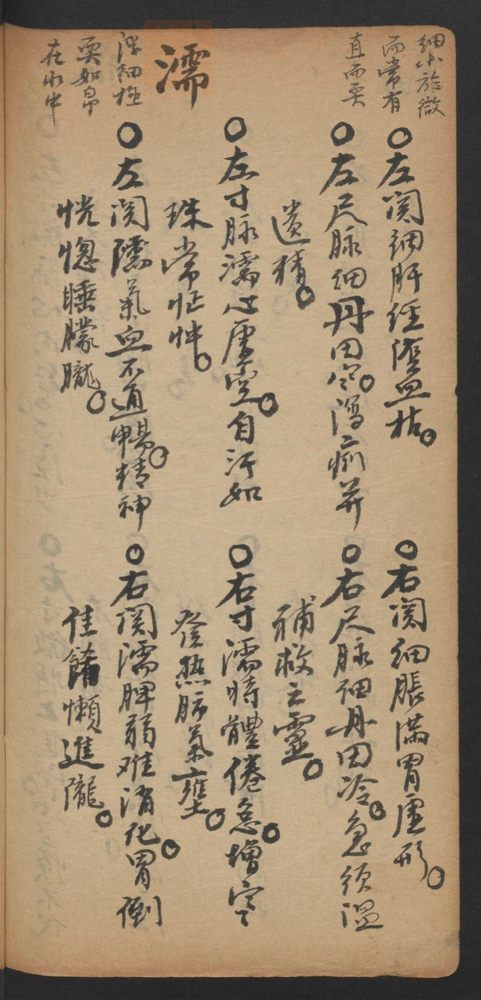 細小於微
而常有
直而耎
○左関細肝經隂血枯。
○右関細脹滿胃虛形。
○左尺脉細丹田冷。瀉痢并
遺精。
○右尺脉細丹田冷。急須温
補救之靈。
濡
浮細極
耎如帛
在水中
○左寸脉濡心虛空。自汗如
珠常怔忡。
○右寸濡時體倦怠。增寒
發熱肺氣壅。
○左関濡氣血不通暢。精神
恍惚睡朦朧。
○右関濡脾弱难消化。胃倒
佳餚懶進嚨。